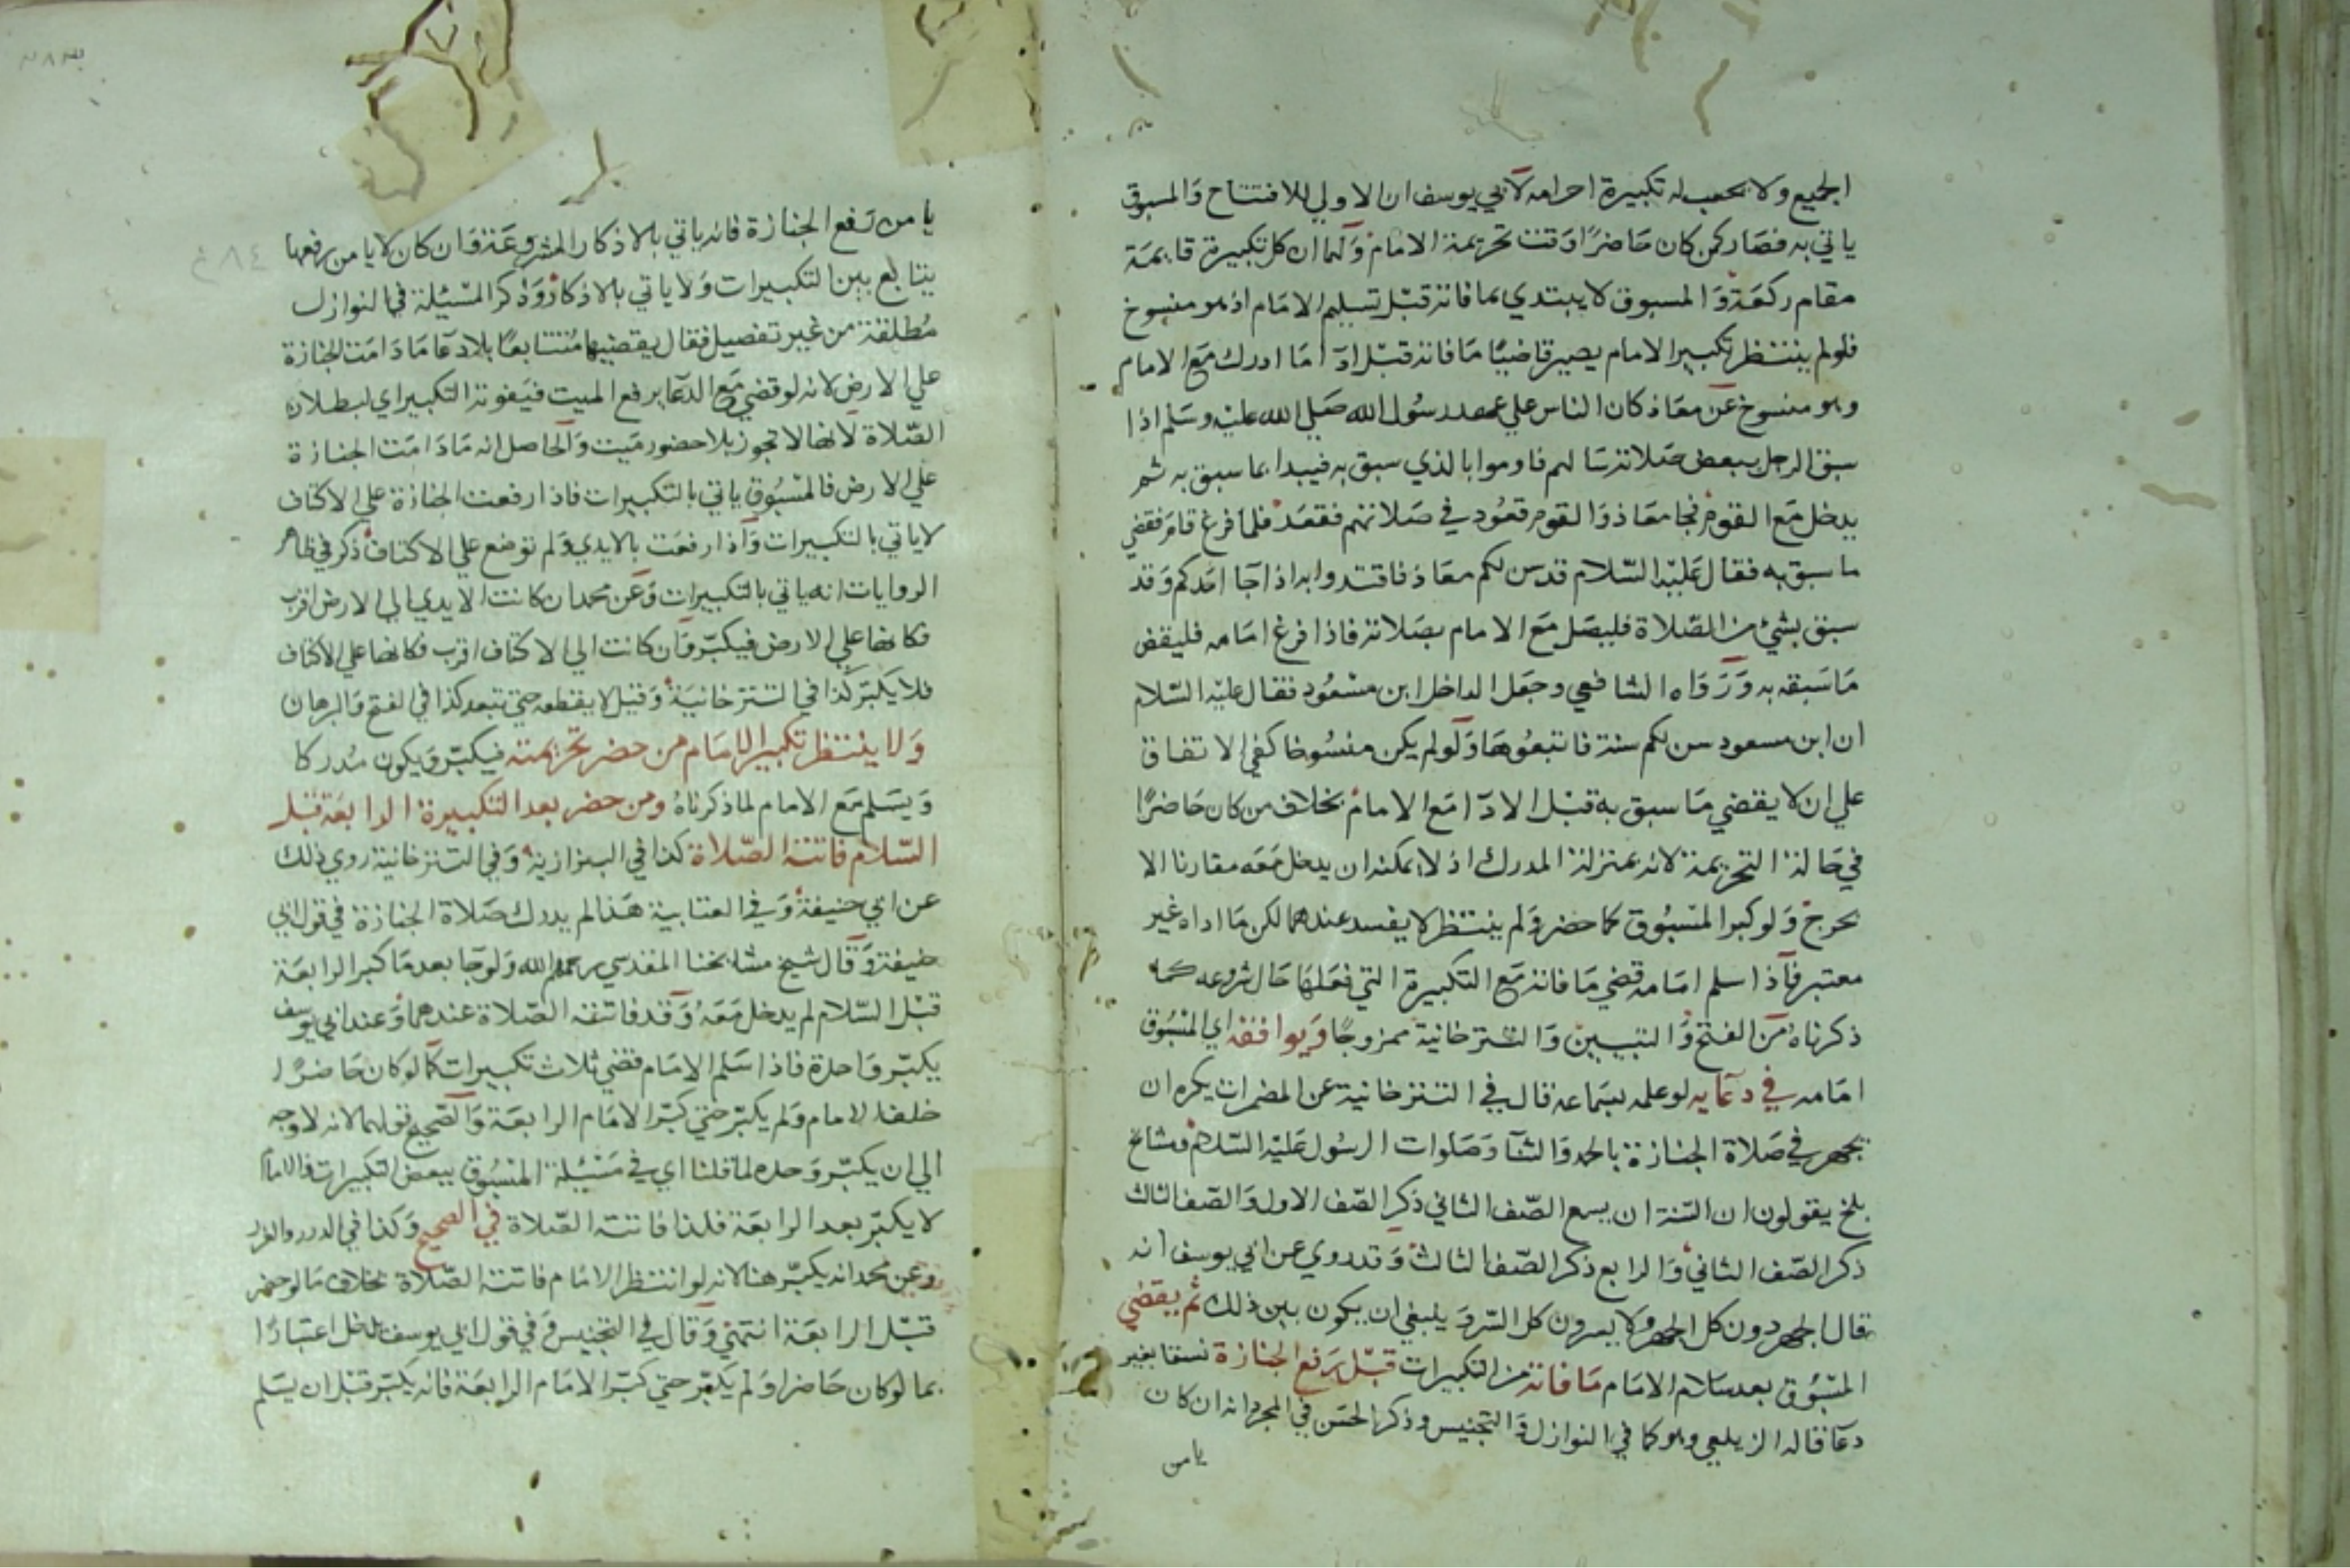 الجميع ولا تحسب له تكبيرة احرامه لابي يوسف ان الاولي للافتتاح والمسبوق
ياتي به فصار كمن كان حاضرا وقت تحريمة الامام ولهما ان كل تكبيرة قايمة
مقام ركعة والمسبوق لا يبتدي بما فاته قبل تسليم الامام اذ هو منسوخ
فلو لم ينتظر تكبير الامام يصير قاضيا ما فاته قبل ادآ ما ادرك مع الامام
وهو منسوخ عن معاذ كان الناس علي عهد رسول الله صلي الله عليه وسلم اذا
سبق الرجل ببعض صلاته سالهم فاوموا بالذي سبق به فيبدا بما سبق به ثم
يدخل مع القوم فجا معاذ والقوم قعود في صلاتهم فقعد فلما فرغ قام فقضي
ما سبق به فقال عليه السلام قد سن لكم معاذ فاقتدوا به اذا جا احدكم وقد
سبق بشيء من الصلاة فليصل مع الامام بصلاته فاذا فرغ امامه فليقض
ما سبقه به ورواه الشافعي وجعل الداخل ابن مسعود فقال عليه السلام
ان ابن مسعود سن لكم سنة فاتبعوها ولو لم يكن منسوخا كفي الاتفاق
علي ان لا يقضي ما سبق به قبل الادآ مع الامام بخلاف من كان حاضرا
في حالة التحريمة لانه بمنزلة المدرك اذ لا يمكنه ان يدخل معه مقارنا الا
بحرج ولو كبر المسبوق كما حضر ولم ينتظر لا يفسد عندهما لكن ما اداه غير
معتبر فاذا سلم امامه قضي ما فاته مع التكبيرة التي فعلها حال شروعه كما
ذكرناه من الفتح والتبيين والتتزخانية ممزوجا ويوافقه اي المسبوق
امامه في دعايه لو علمه بسماعه قال في التتزخانية عن المضمرات يكره ان
يجهر في صلاة الجنازة بالحمد والثنآ وصلوات الرسول عليه السلام ومشايخ
بلخ يقولون ان السنة ان يسمع الصف الثاني ذكر الصف الاول والصف الثالث
ذكر الصف الثاني والرابع ذكر الصف الثالث وقد روي عن ابي يوسف انه
قال الجهر دون كل الجهر ولا يسرون كل السر وينبغي ان يكون بين ذلك ثم يقضي
المسبوق بعد سلام الامام ما فاته من التكبيرات قبل رفع الجنازة نسقا بغير
دعآ قاله الزيلعي وهو كما في النوازل والتجنيس وذكر الحسن في المجرد انه ان كان
يامن
يامن رفع الجنازة فانه ياتي بالاذكار المشروعة وان كان لا يامن رفعها
يتابع بين التكبيرات ولا ياتي بالاذكار وذكر المسئلة في النوازل
مطلقة من غير تفصيل فقال يقضيها متتابعا بلا دعآ ما دامت الجنازة
علي الارض لانه لو قضي مع الدعآ يرفع الميت فيفوته التكبير اي لبطلان
الصلاة لانها لا تجوز بلا حضور ميت والحاصل انه ما دامت الجنازة
علي الارض فالمسبوق ياتي بالتكبيرات فاذا رفعت الجنازة علي الاكتاف
لا ياتي بالتكبيرات واذا رفعت بالايدي ولم توضع علي الاكتاف ذكر في ظاهر
الروايات انه ياتي بالتكبيرات وعن محمد ان كانت الايدي الي الارض اقرب
فكانها علي الارض فيكبر وان كانت الي الاكتاف اقرب فكانها علي الاكتاف
فلا يكبر كذا في التتزخانية وقيل لا يقطعه حتي تبعد كذا في الفتح والبرهان
ولا ينتظر تكبير الامام من حضر تحريمته فيكبر ويكون مدركا
ويسلم مع الامام لما ذكرناه ومن حضر بعد التكبيرة الرابعة قبل
السلام فاتته الصلاة كذا في البزازية وفي التتزخانية روي ذلك
عن ابي حنيفة وفي العتابية هذا لم يدرك صلاة الجنازة في قول ابي
حنيفة وقال شيخ مشايخنا المقدسي رحمهم الله ولو جا بعد ما كبر الرابعة
قبل السلام لم يدخل معه وقد فاتته الصلاة عندهما وعند ابي يوسف
يكبر واحدة فاذا سلم الامام قضي ثلاث تكبيرات كما لو كان حاضرا
خلف الامام ولم يكبر حتي كبر الامام الرابعة والصحيح قولهما لانه لا وجه
الي ان يكبر وحده لما قلنا اي في مسئلة المسبوق ببعض التكبيرات فالامام
لا يكبر بعد الرابعة فلذا فاتته الصلاة في الصحيح وكذا في الدرر والغرر
وعن محمد انه يكبر هنا لانه لو انتظر الامام فاتته الصلاة بخلاف ما لو حضر
قبل الرابعة انتهي وقال في التجنيس وفي قول ابي يوسف يدخل اعتبارا
بما لو كان حاضرا ولم يكبر حتي كبر الامام الرابعة فانه يكبر قبل ان يسلم